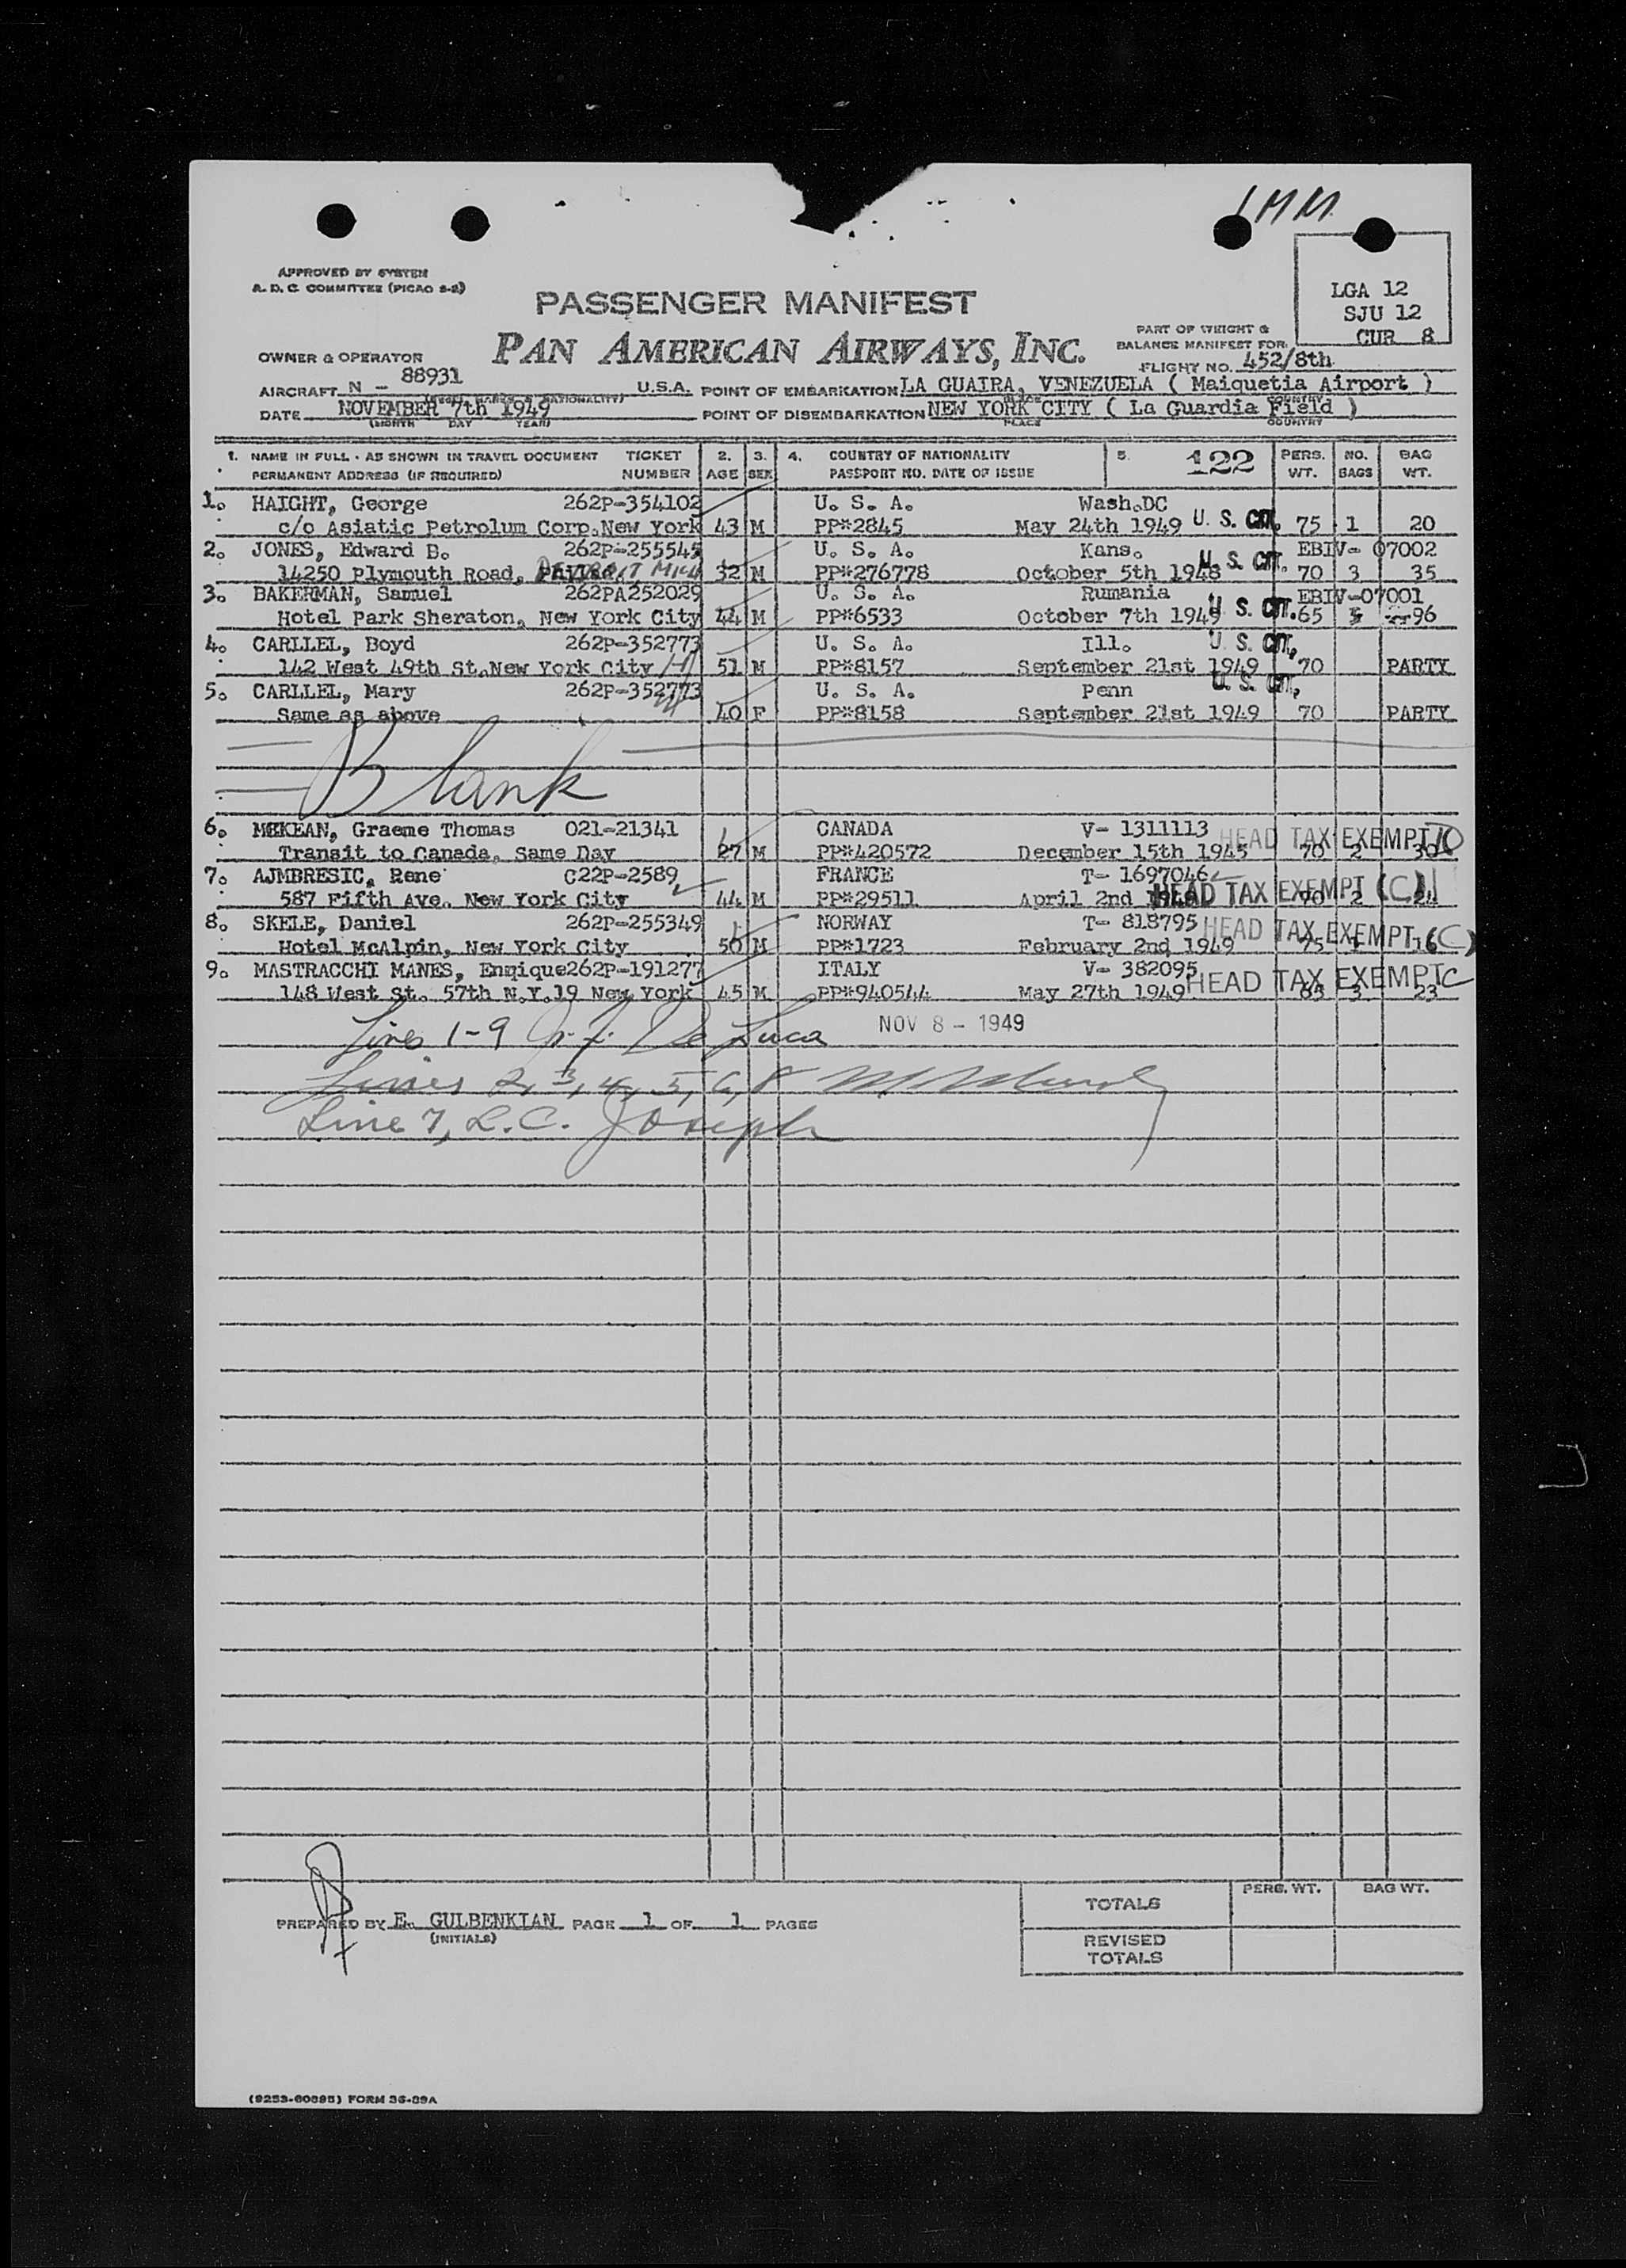 IMM
APPROVED BY SYSTEM
A. D. C. COMMITTEE (PICAO 2-2)
LGA 12
SJU 12
CUR 8
PASSENGER MANIFEST
PAN AMERICAN AIRWAYS, INC.
PART OF WEIGHT &
BALANCE MANIFEST FOR:
FLIGHT NO. 452/8th
OWNER & OPERATOR
AIRCRAFT N - 88931 U.S.A. POINT OF EMBARKATION LA GUAIRA, VENEZUELA ( Maiquetia Airport )
DATE NOVEMBER 7th 1949 POINT OF DISEMBARKATION NEW YORK CITY ( La Guardia Field )
(MONTH DAY YEAR) PLACE COUNTRY
1. NAME IN FULL - AS SHOWN IN TRAVEL DOCUMENT TICKET 2. 3. 4. COUNTRY OF NATIONALITY 5. 122 PERS. NO. BAG
PERMANENT ADDRESS (IF REQUIRED) NUMBER AGE SEX PASSPORT NO. DATE OF ISSUE WT. BAGS WT.
1. HAIGHT, George 262P-354102 U. S. A. Wash.DC
c/o Asiatic Petrolum Corp.New York 43 M PP#2845 May 24th 1949 U. S. CIT. 75 1 20
2. JONES, Edward B. 262P-255545 U. S. A. Kans. EBIV- 07002
14250 Plymouth Road, DETROIT MICH 32 M PP#276778 October 5th 1948 U. S. CIT. 70 3 35
3. BAKERMAN, Samuel 262PA252029 U. S. A. Rumania EBIV-07001
Hotel Park Sheraton, New York City 44 M PP#6533 October 7th 1949 U. S. CIT. 65 96
4. CARLLEL, Boyd 262P-352773 U. S. A. Ill. U. S. CIT.
142 West 49th St.New York City 51 M PP#8157 September 21st 1949 70 PARTY
5. CARLLEL, Mary 262P-352773 U. S. A. Penn U. S. CIT.
Same as above 40 F PP#8158 September 21st 1949 70 PARTY
Blank
6. MCKEAN, Graeme Thomas 021-21341 CANADA V- 1311113 HEAD TAX EXEMPT
Transit to Canada, Same Day 27 M PP#420572 December 15th 1945 70 2 30
7. AJMBRESIC, Rene C22P-2589 FRANCE T- 1697046
587 Fifth Ave. New York City 44 M PP#29511 April 2nd HEAD TAX EXEMPT (C)
8. SKELE, Daniel 262P-255349 NORWAY T- 818795 HEAD TAX EXEMPT (C)
Hotel McAlpin, New York City 50 M PP#1723 February 2nd 1949 75 1 16
9. MASTRACCHI MANES, Enrique262P-191277 ITALY V- 382095 HEAD TAX EXEMPT C
148 West St. 57th N.Y.19 New York 45 M PP#940544 May 27th 1949 65 3 23
Lines 1-9 De Luca NOV 8 - 1949
Lines 2, 3, 4, 5, 6, 8
Line 7, L.C. Joseph
PERS. WT. BAG WT.
TOTALS
PREPARED BY E. GULBENKIAN PAGE 1 OF 1 PAGES
(INITIALS)
REVISED
TOTALS
(9253-60895) FORM 36-89A